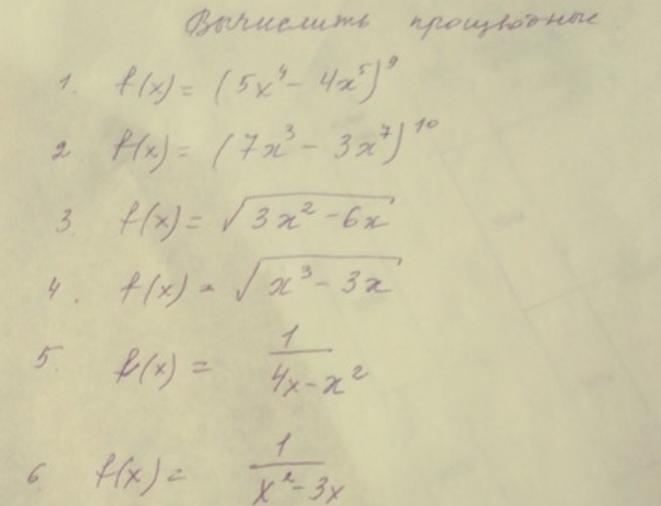 Вычислить производные
1. f(x) = (5x⁴ - 4x⁵)⁹
2 f(x) = (7x³ - 3x⁷)¹⁰
3. f(x) = √(3x² - 6x)
4. f(x) = √(x³ - 3x)
5. f(x) = 1/(4x - x²)
6 f(x) = 1/(x² - 3x)